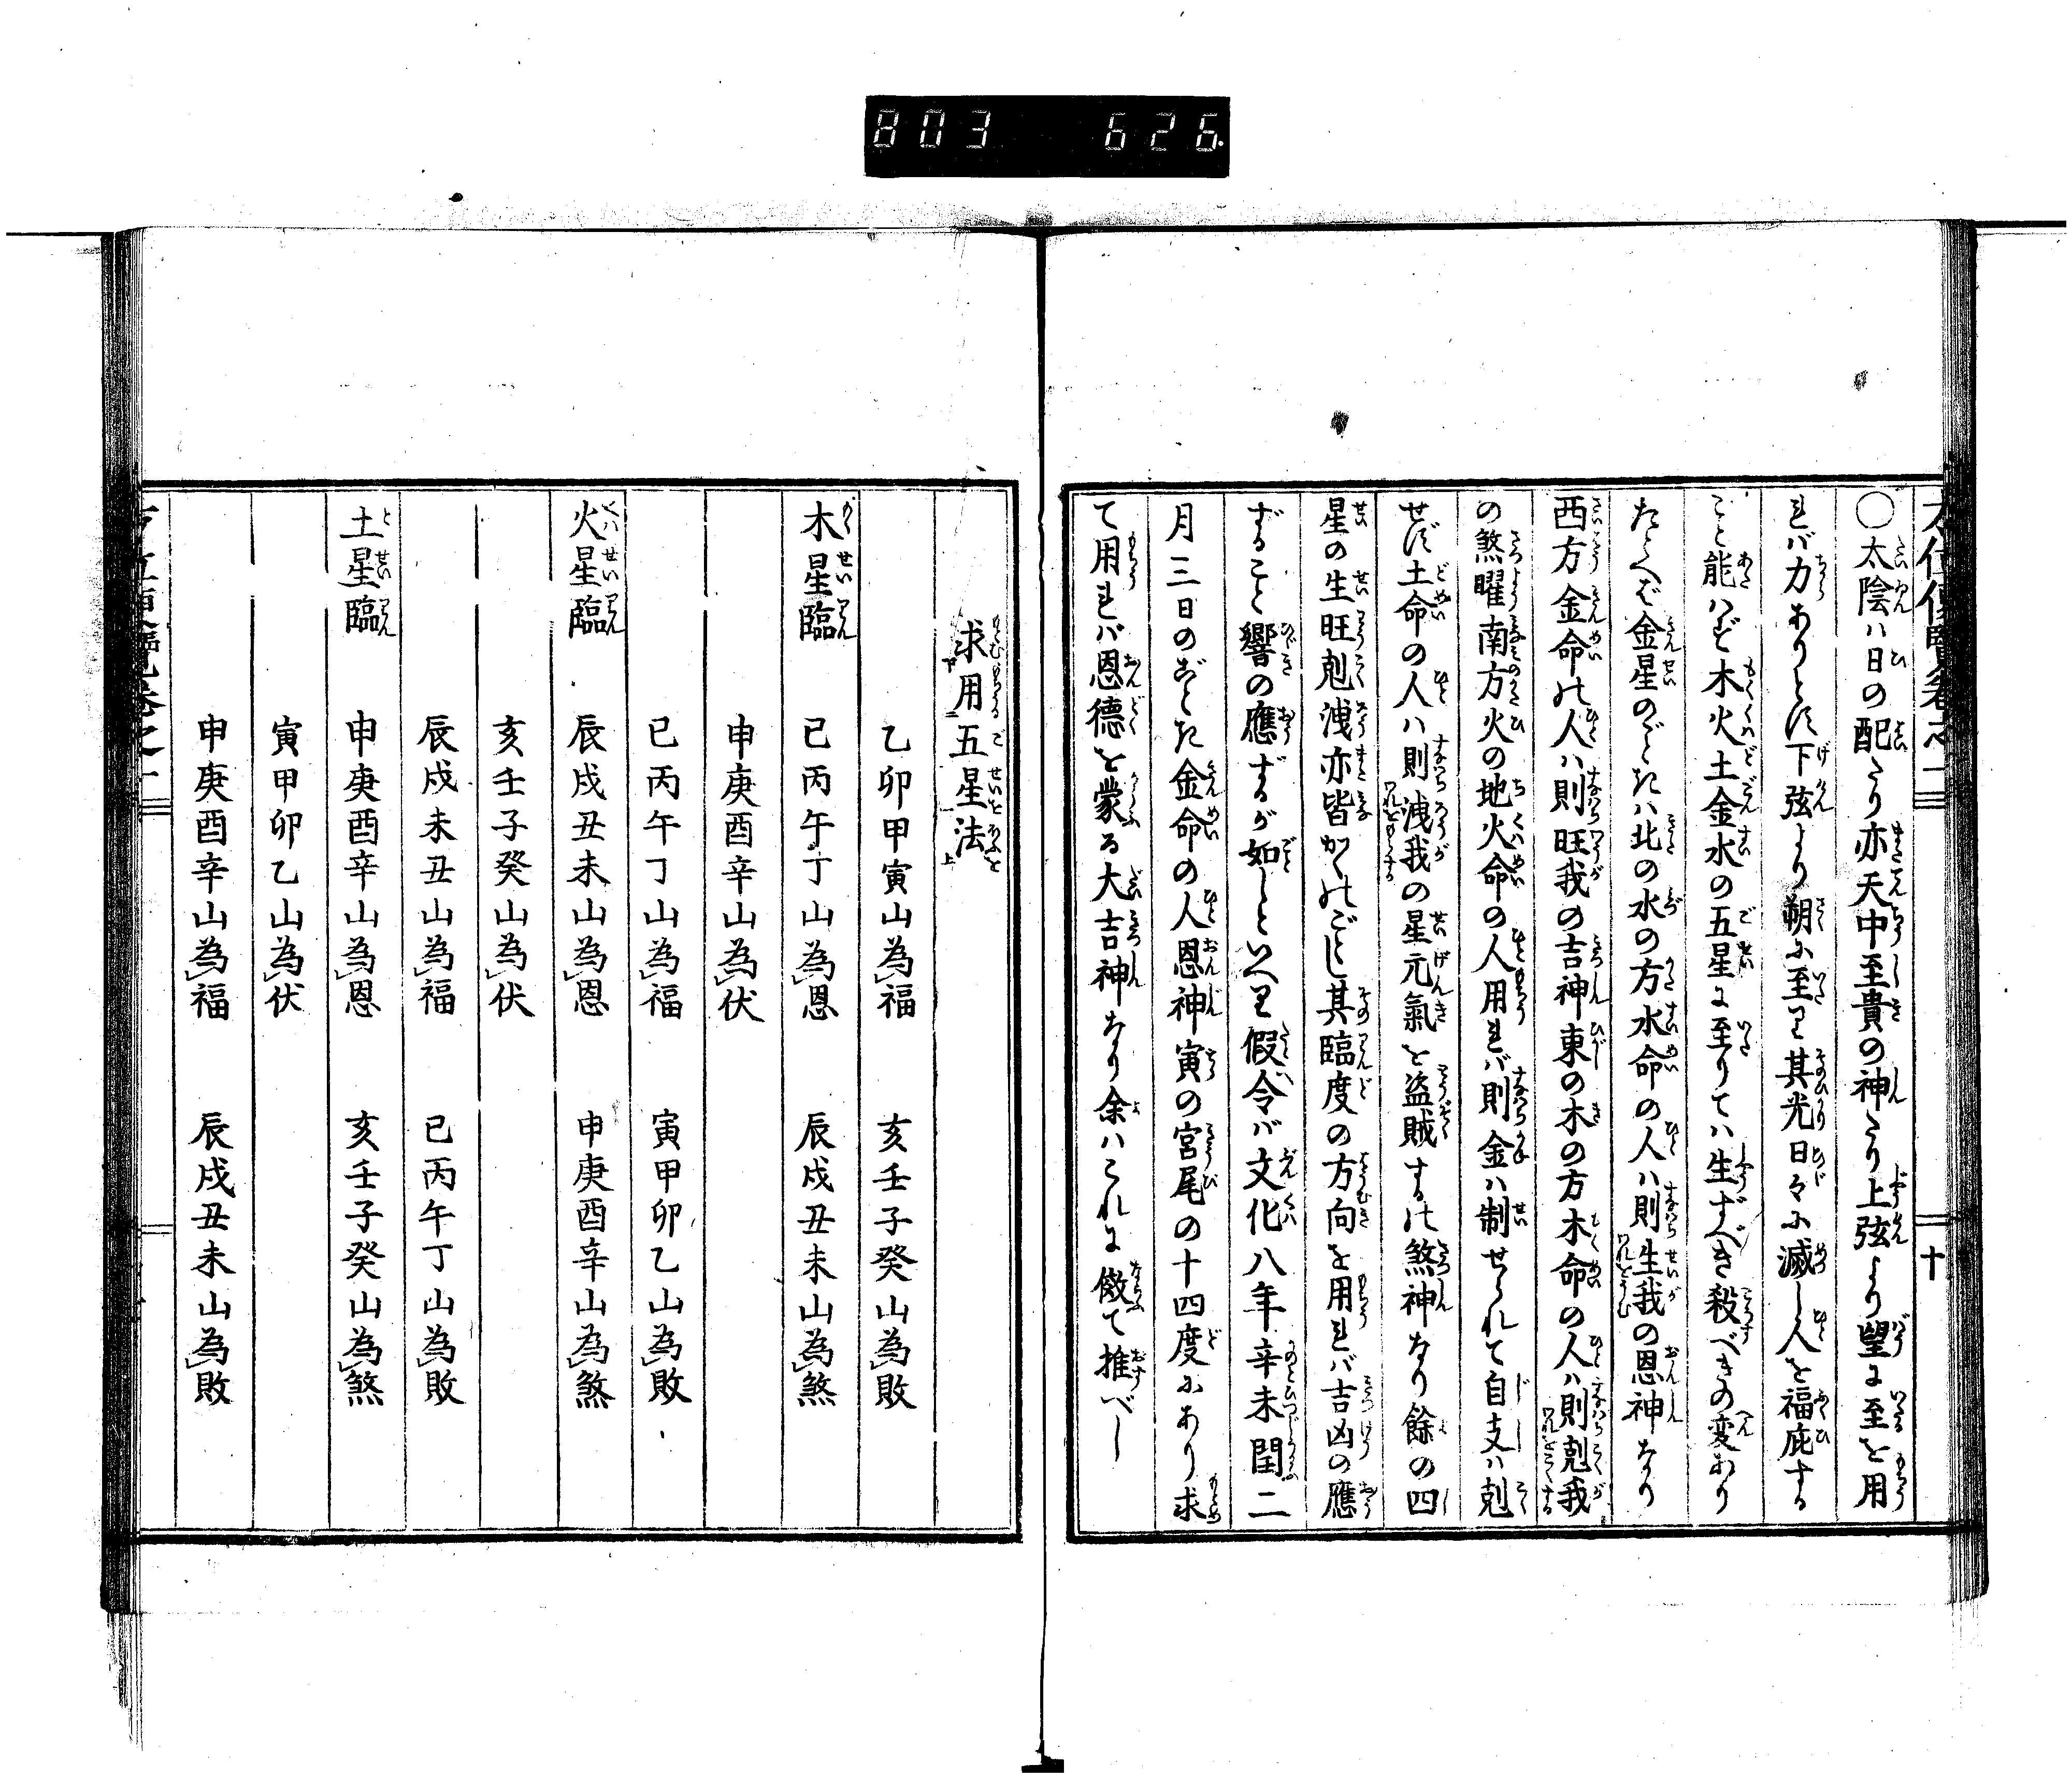 803 626
十
〇太陰ハ日の配なり亦天中至貴の神なり上弦より望に至を用
れバ力ありとす下弦より朔に至て其光日々に滅し人を福庇する
こと能ハず木火土金水の五星に至りてハ生ずべき殺べきの変あり
たとへば金星のごときハ北の水の方水命の人ハ則生我の恩神なり
西方金命の人ハ則旺我の吉神東の木の方木命の人ハ則剋我
の煞曜南方火の地火命の人用れバ則金ハ制せられて自支ハ剋
せず土命の人ハ則洩我の星元氣を盗賊するの煞神なり餘の四
星の生旺剋洩亦皆かくのごとし其臨度の方向を用れバ吉凶の應
ずること響の應ずるが如しといへり假令バ文化八年辛未閏二
月三日のごとき金命の人恩神寅の宮尾の十四度にあり求
て用れバ恩德を蒙る大吉神なり余ハこれに傚て推べし
求用五星法
乙卯甲寅山為福 亥壬子癸山為敗
木星臨 巳丙午丁山為恩 辰戌丑未山為煞
申庚酉辛山為伏
巳丙午丁山為福 寅甲卯乙山為敗
火星臨 辰戌丑未山為恩 申庚酉辛山為煞
亥壬子癸山為伏
辰戌未丑山為福 巳丙午丁山為敗
土星臨 申庚酉辛山為恩 亥壬子癸山為煞
寅甲卯乙山為伏
申庚酉辛山為福 辰戌丑未山為敗